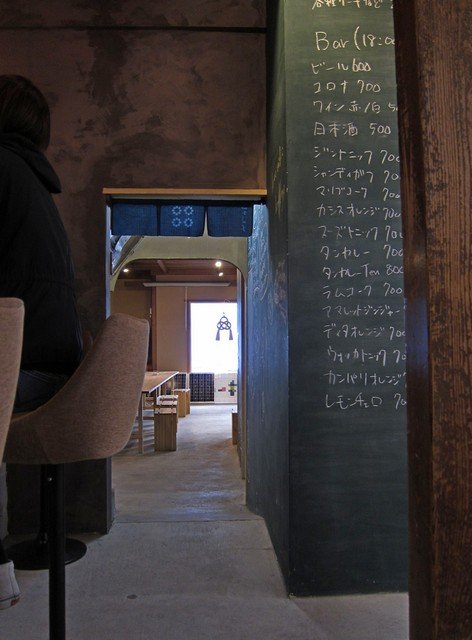 Bar (18:00
ビール 600
コロナ 700
ワイン赤/白 5
日本酒 500
ジントニック 700
シャンディガフ 7
マリブコーク 70
カシスオレンジ 700
スーズトニック 700
タンカレー 70
タンカレーTen 800
ラムコーク 70
アマレットジンジャー
ディタオレンジ 70
ウォッカトニック 700
カンパリオレンジ
レモンチェロ 70